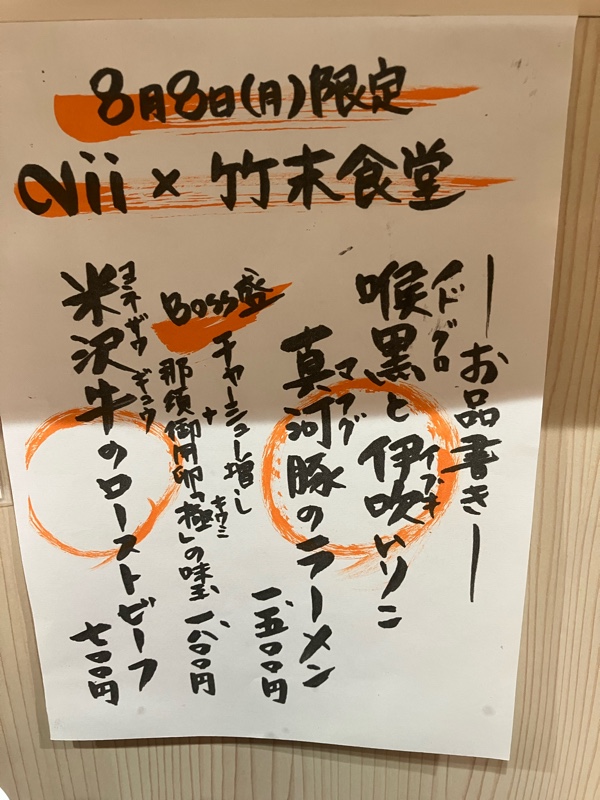 8月8日(月)限定
Nii × 竹末食堂
―お品書き―
喉黒と伊吹いりこ
ノドグロ
イブキ
真河豚のラーメン
マフグ
一、五〇〇円
Boss盛
チャーシュー増し
+
那須御用卵「極」の味玉
キワミ
一、八〇〇円
米沢牛のローストビーフ
ヨネザワギュウ
七〇〇円